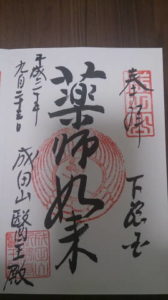 奉拝
下総国
薬師如来
平成二十年
九月二十三日
成田山醫王殿